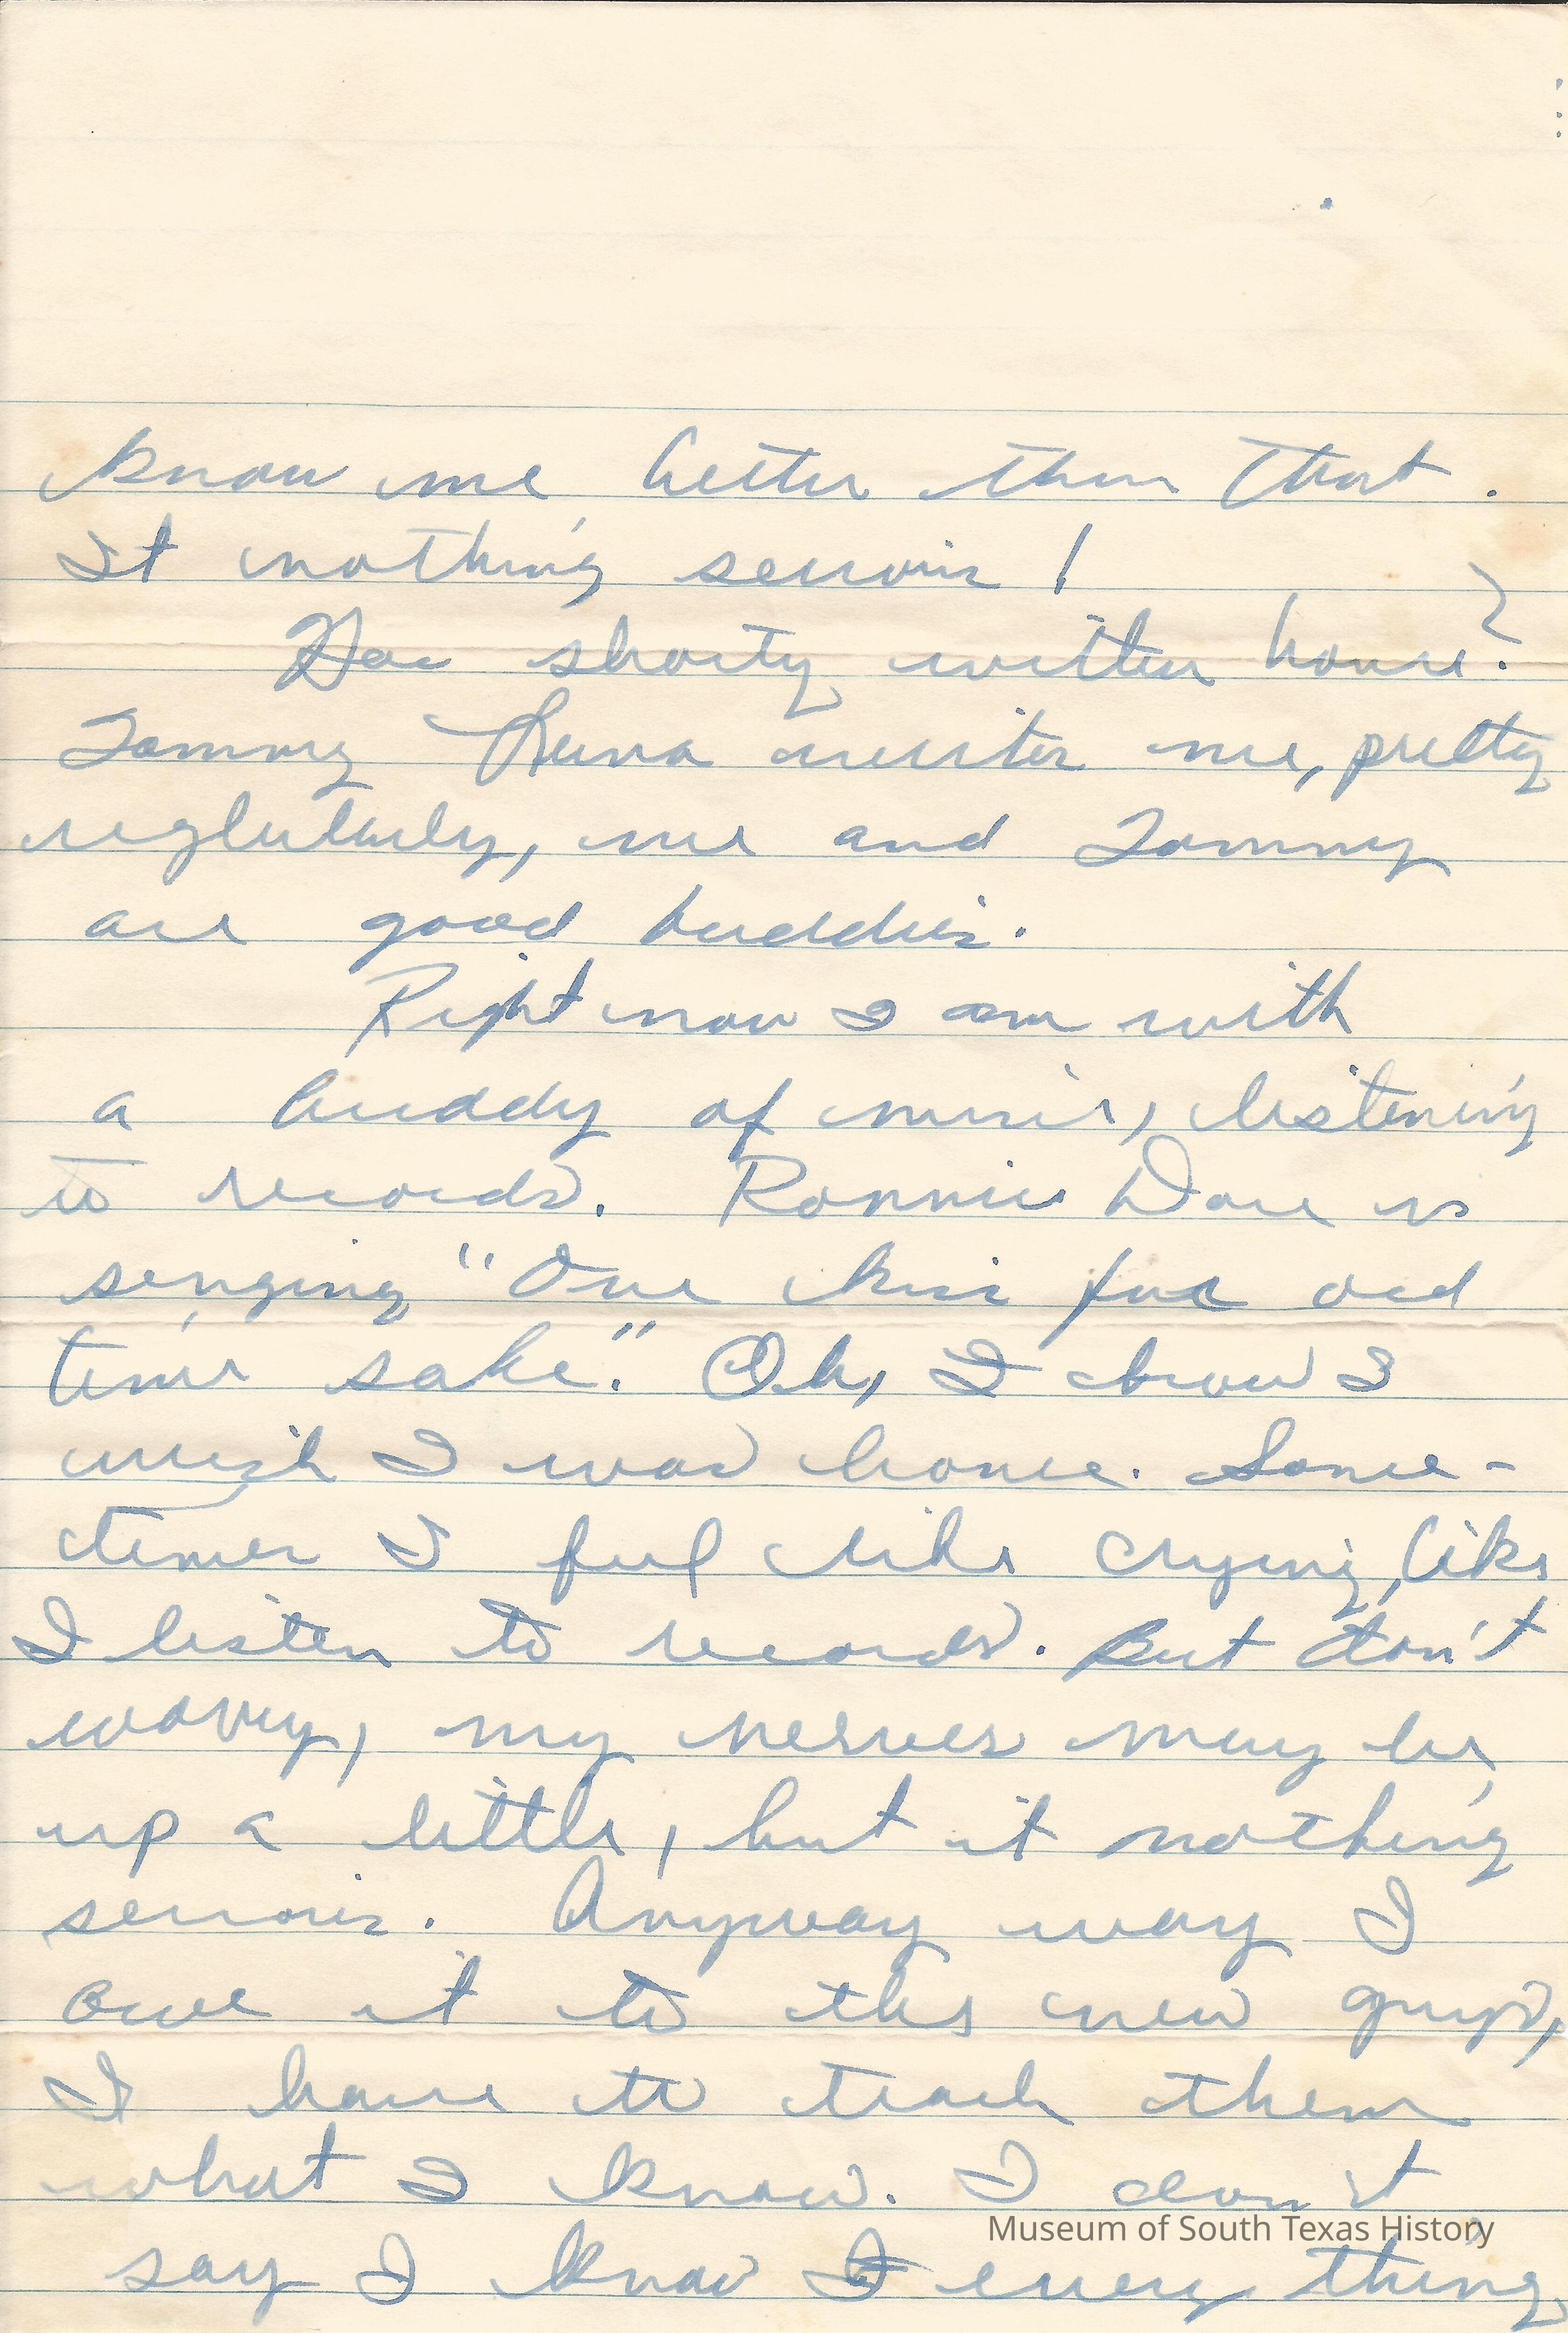 know me better then that.
It nothing serious!
Has shorty written home?
Tommy Luna writes me, pretty
reglularly, me and Tommy
are good buddies.
Right now I am with
a buddy of mine, listening
to records. Ronnie Dove is
singing "One kiss for old
time sake." Oh, I how I
wish I was home. Some-
times I feel like crying, like
I listen to records. But don't
worry, my nerves may be
up a little, but it nothing
serious. Anyway way I
owe it to the new guys,
I have to teach them
what I know. I don't
say I know every thing,
Museum of South Texas History